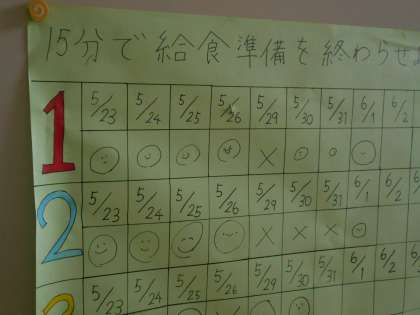 15分で給食準備を終わらせ
1 5/23 5/24 5/25 5/26 5/29 5/30 5/31 6/1 6/2
× 
2 5/23 5/24 5/25 5/26 5/29 5/30 5/31 6/1 6/2 6
× × ×
5/23 5/24 5/25 5/26 5/29 5/30 5/31 6/1 6/2